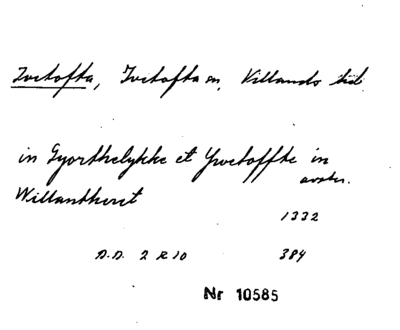 Ivetofta, Ivetofta sn, Villands hd.
in Gyorthelykke et Ywetoffte in
avskr.
Willandheret
1332
D.D. 2 R 10 384
Nr 10585